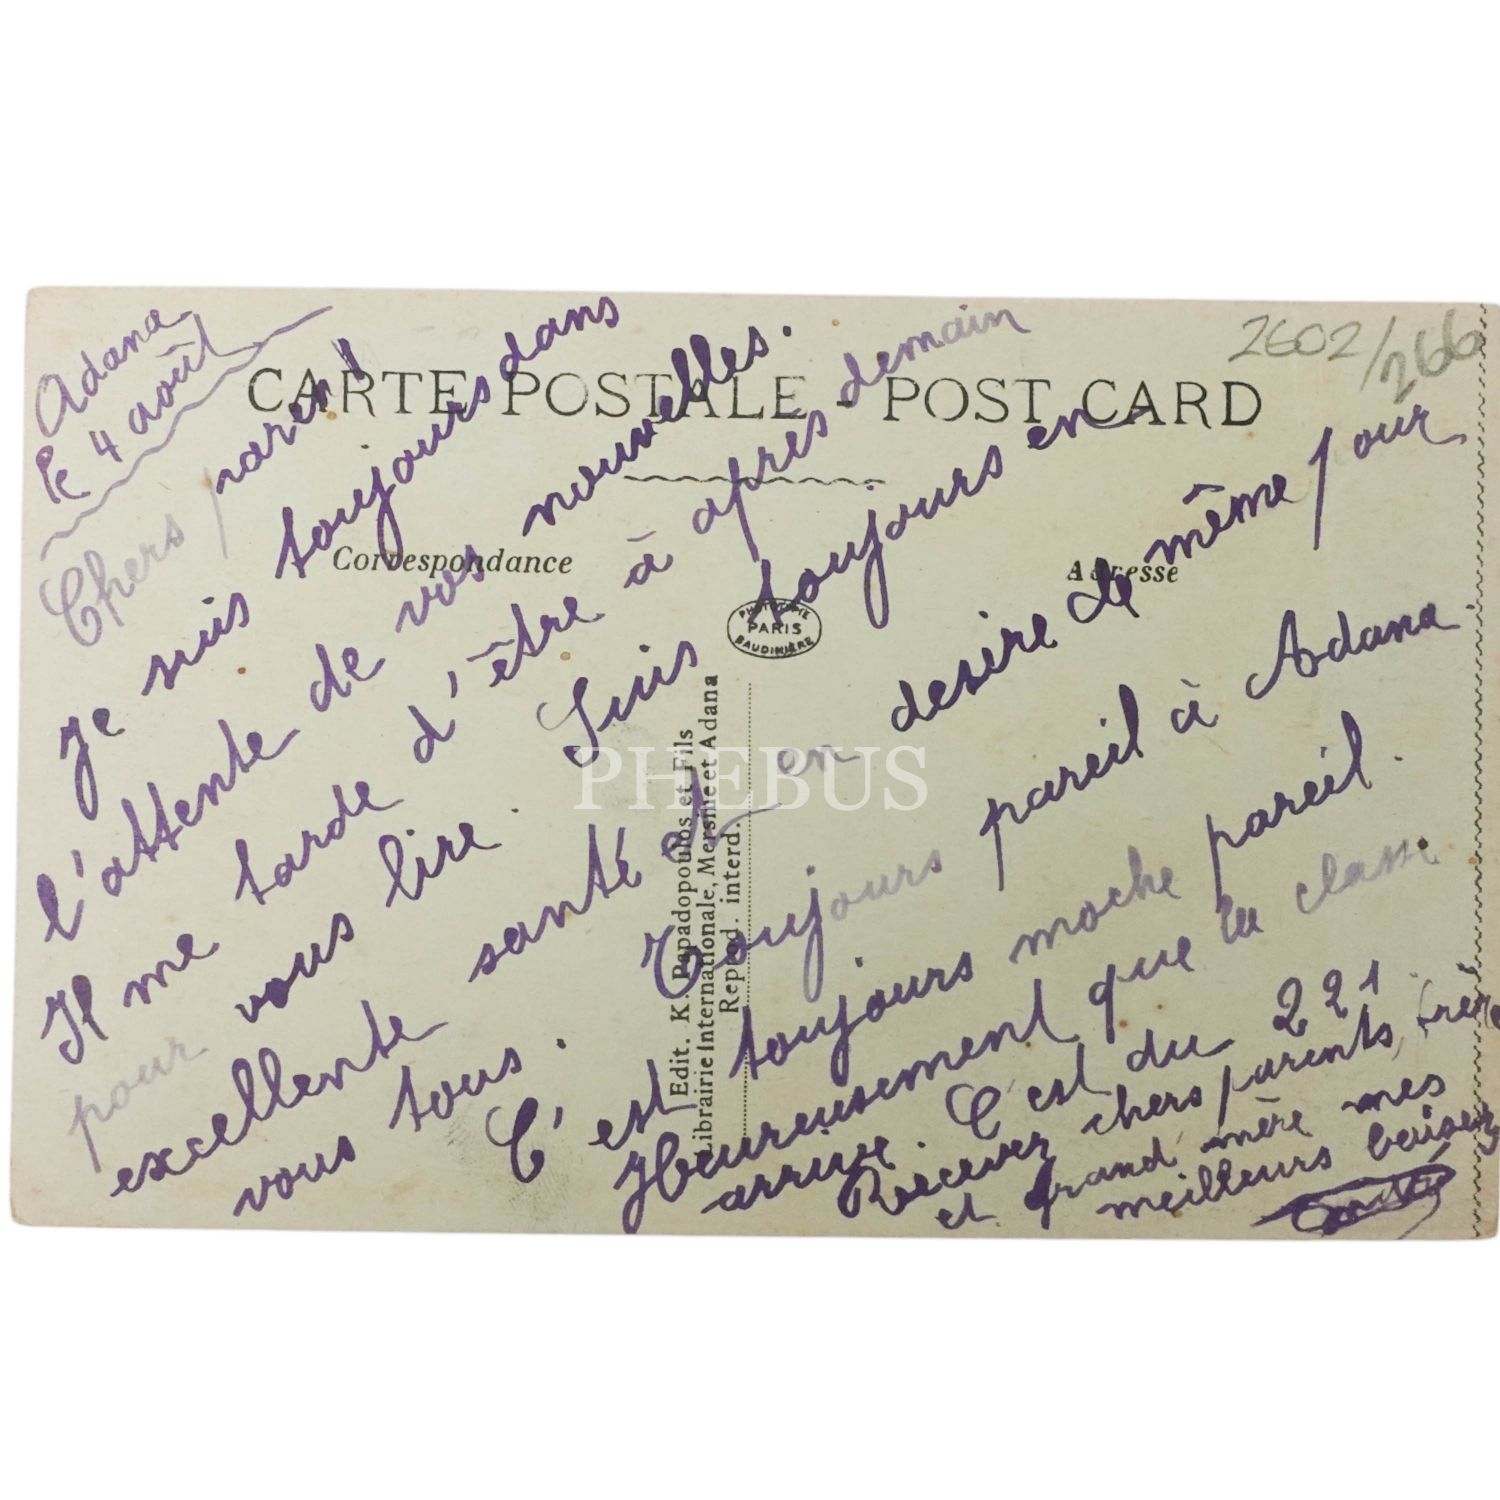 2602/266
CARTE POSTALE - POST CARD
Correspondance
Adresse
PHOTOTYPIE
PARIS
BAUDINIÈRE
Edit. K. Papadopoulos et Fils
Librairie Internationale, Mersine et Adana
Reprod. interd.
PHEBUS
Adana
le 4 août
Chers parents
Je suis toujours dans
l'attente de vos nouvelles.
Il me tarde d'être à après demain
pour vous lire. Suis toujours en
excellente santé et en desire de même pour
vous tous. Toujours pareil à Adana.
C'est toujours moche pareil.
Heureusement que la classe
arrive. C'est du 221
Recevez chers parents, frère
et grand mère mes
meilleurs baisers